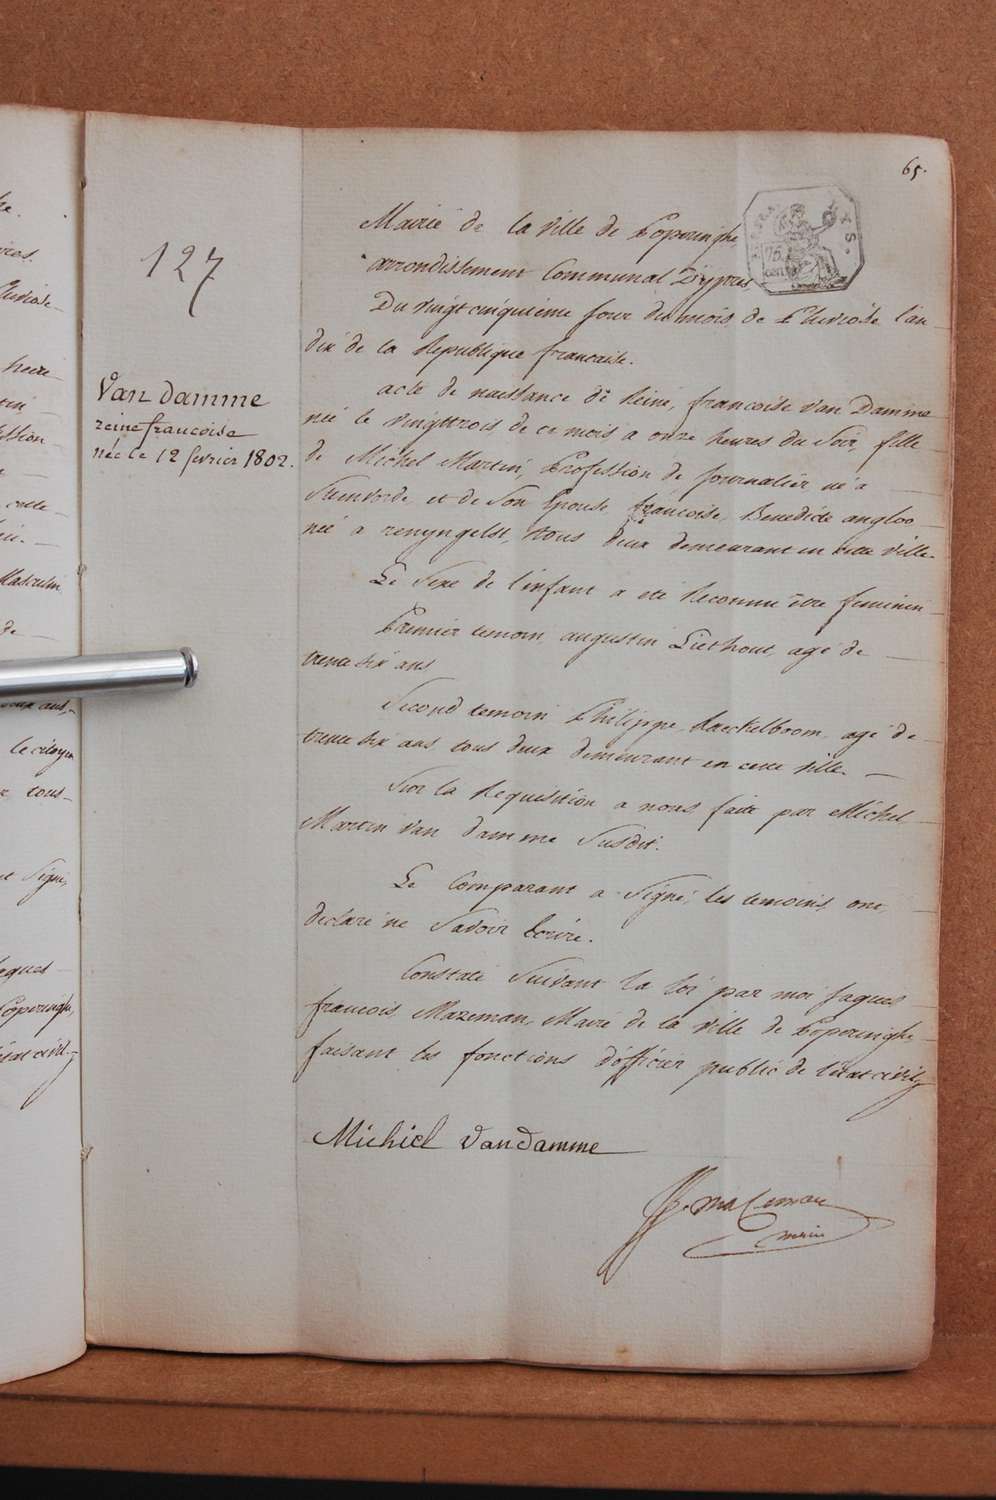 65.
127
Van Damme
reine francoise
née le 12 fevrier 1802.
Mairie de la ville de Poperinghe
arrondissement Communal D'ypres
75 cent
Du vingt cinquieme jour du mois de Pluviose l'an
dix de la Republique francaise.
acte de naissance de Reine, francoise Van Damme
née le vingttrois de ce mois a onze heures du Soir, fille
de Michel Martin, Profession de journalier né a
Steenvorde et de Son Epouse francoise, Benedicte angloo
née a renyngelst, tous deux demeurant en cette ville.
Le Sexe de l'infant a été Reconnu être feminin
Premier temoin, augustin Liethout, agé de
trente six ans
Second temoin Philippe Kaeckelboom, agé de
trente six ans tous deux demeurant en cette ville.
Sur la Requisition a nous faite par Michel
Martin Van Damme Susdit.
Le Comparant a Signé, les temoins ont
declaré ne Savoir Ecrire.
Constaté Suivant la loi par moi Jaques
francois Mazeman, Maire de la ville de Poperinghe
faisant les fonctions d'officier public de l'état civil
Michiel VanDamme
Mazeman
maire